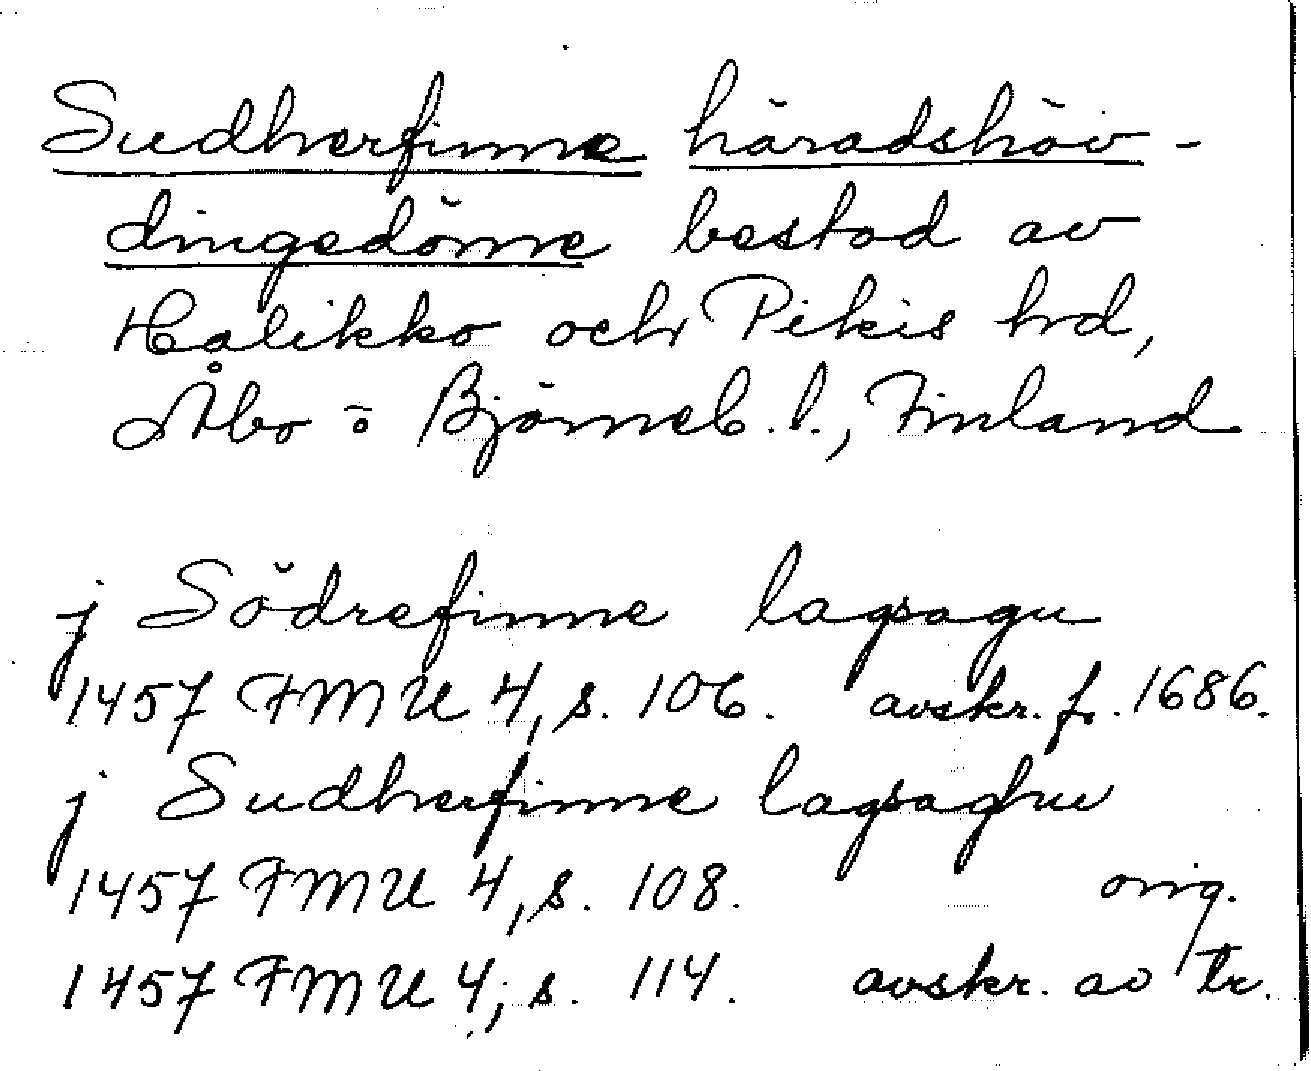 Sudherfinne häradshöv-
dingedöme bestod av
Halikko och Pikis hd,
Åbo o Björneb. l., Finland
j Södrefinne lagsagu
1457 FMU 4, s. 106. avskr. fr. 1686.
j Sudherfinne lagsaghu
1457 FMU 4, s. 108. orig.
1457 FMU 4, s. 114. avskr. av tr.